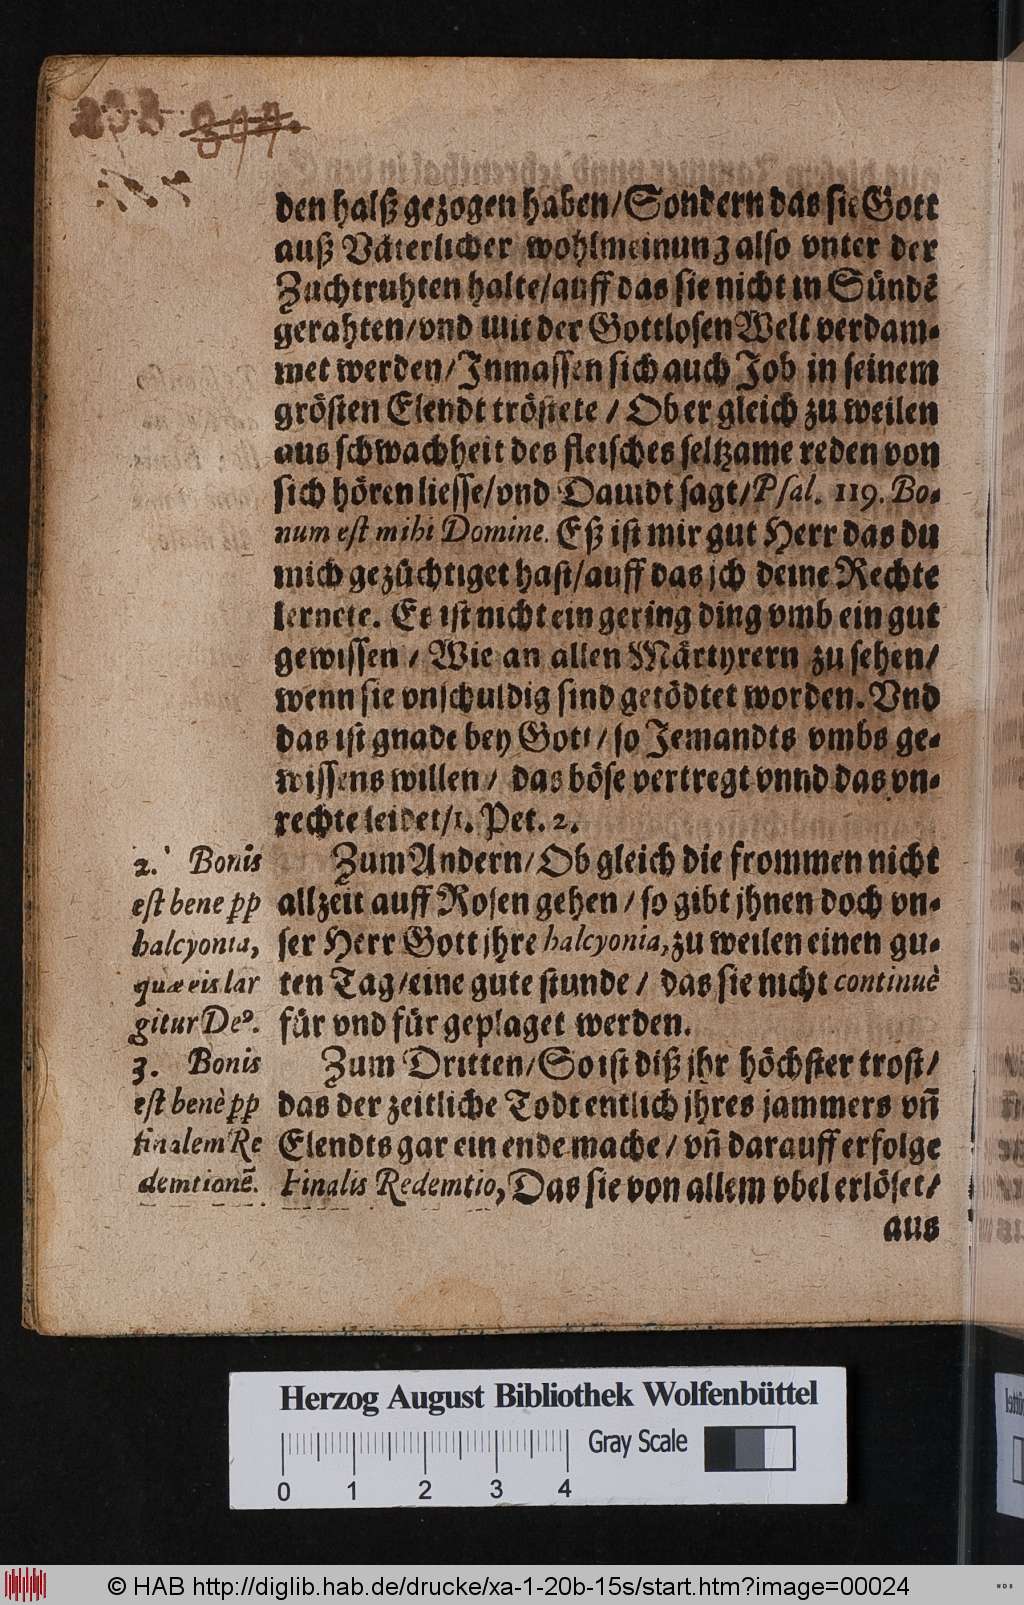 den halß gezogen haben/Sondern das sie Gott
auß Väterlicher wohlmeinung also vnter der
Zuchtruhten halte/auff das sie nicht in Sündẽ
gerahten/vnd mit der Gottlosen Welt verdam-
met werden/Inmassen sich auch Job in seinem
grösten Elendt tröstete / Ob er gleich zu weilen
aus schwachheit des fleisches seltzame reden von
sich hören liesse/vnd Dauidt sagt/Psal. 119. Bo-
num est mihi Domine. Eß ist mir gut Herr das du
mich gezüchtiget hast/auff das jch deine Rechte
lernete. Es ist nicht ein gering ding vmb ein gut
gewissen / Wie an allen Märtyrern zu sehen/
wenn sie vnschuldig sind getödtet worden. Vnd
das ist gnade bey Gott/so Jemandts vmbs ge-
wissens willen / das böse vertregt vnnd das vn-
rechte leidet/1. Pet. 2.
2. Bonis
est bene pp
halcyonia,
quæ eis lar
gitur Deꝰ.
Zum Andern/Ob gleich die frommen nicht
allzeit auff Rosen gehen / so gibt jhnen doch vn-
ser Herr Gott jhre halcyonia, zu weilen einen gu-
ten Tag/eine gute stunde / das sie nicht continuè
für vnd für geplaget werden.
3. Bonis
est benè pp
finalem Re
demtionẽ.
Zum Dritten/So ist diß jhr höchster trost/
das der zeitliche Todt entlich jhres jammers vñ
Elendts gar ein ende mache / vñ darauff erfolge
Finalis Redemtio, Das sie von allem vbel erlöset/
aus
Herzog August Bibliothek Wolfenbüttel
Gray Scale
0 1 2 3 4
© HAB http://diglib.hab.de/drucke/xa-1-20b-15s/start.htm?image=00024